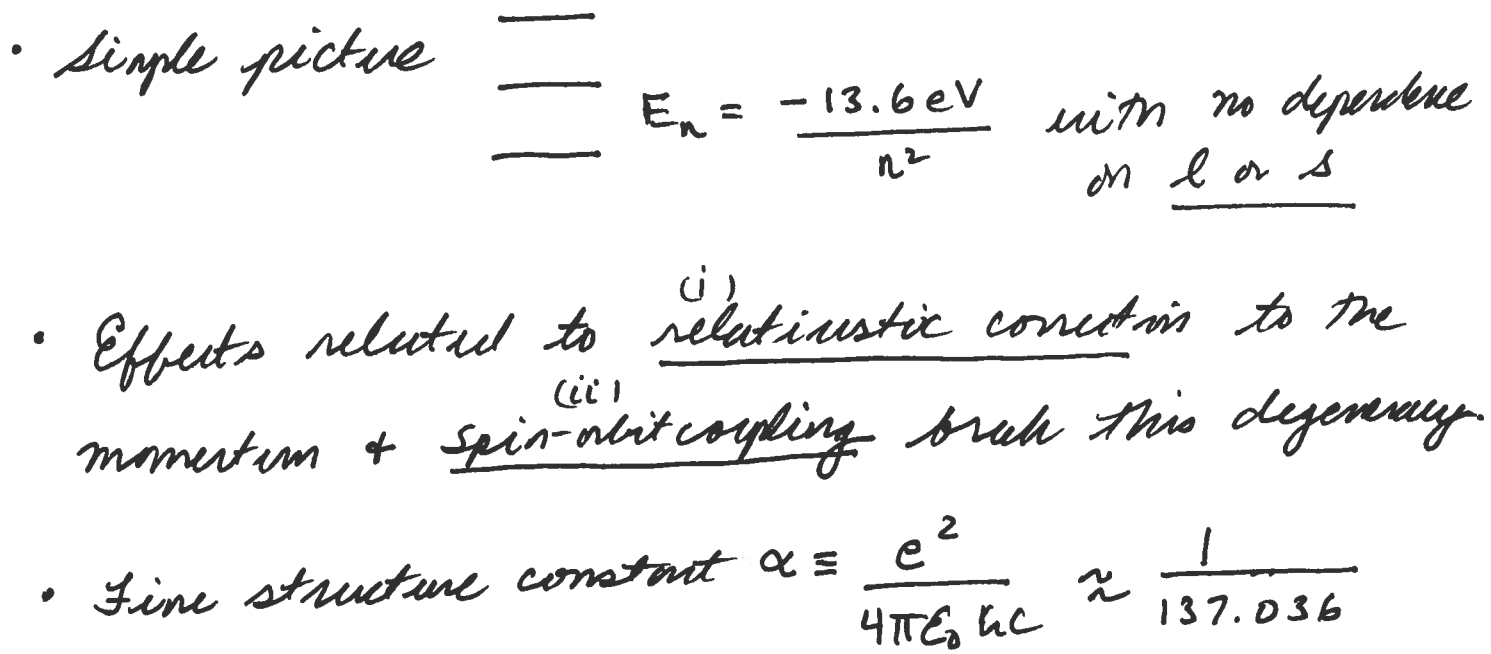 • Simple picture
E_n = -13.6 eV / n² with no dependence
on l or s
(i)
• Effects related to relativistic correction to the
(ii)
momentum & spin-orbit coupling break this degeneracy.
• Fine structure constant α ≡ e² / 4πε₀ħc ≈ 1 / 137.036